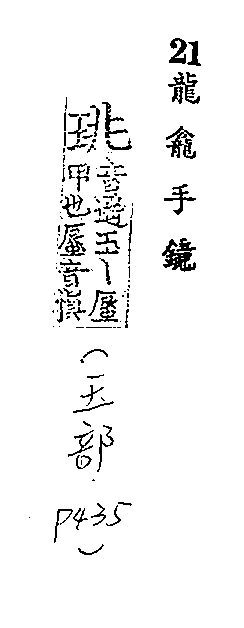 21龍龕手鏡
珧
音遥玉丨蜃
甲也蜃音慎
(玉部
P435)